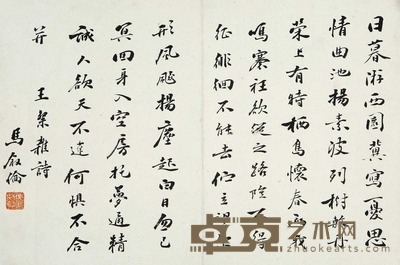 日暮游西園冀寫憂思
情曲池揚素波列樹敷丹
榮上有特栖鳥懷春向我
鳴褰衽欲從之路險不得
征徘徊不能去佇立望
形風飈揚塵起白日忽已
冥回身入空房托夢通精
誠人欲天不違何懼不合
并 王粲雜詩
馬叙倫
艺术网
zhuokearts.com